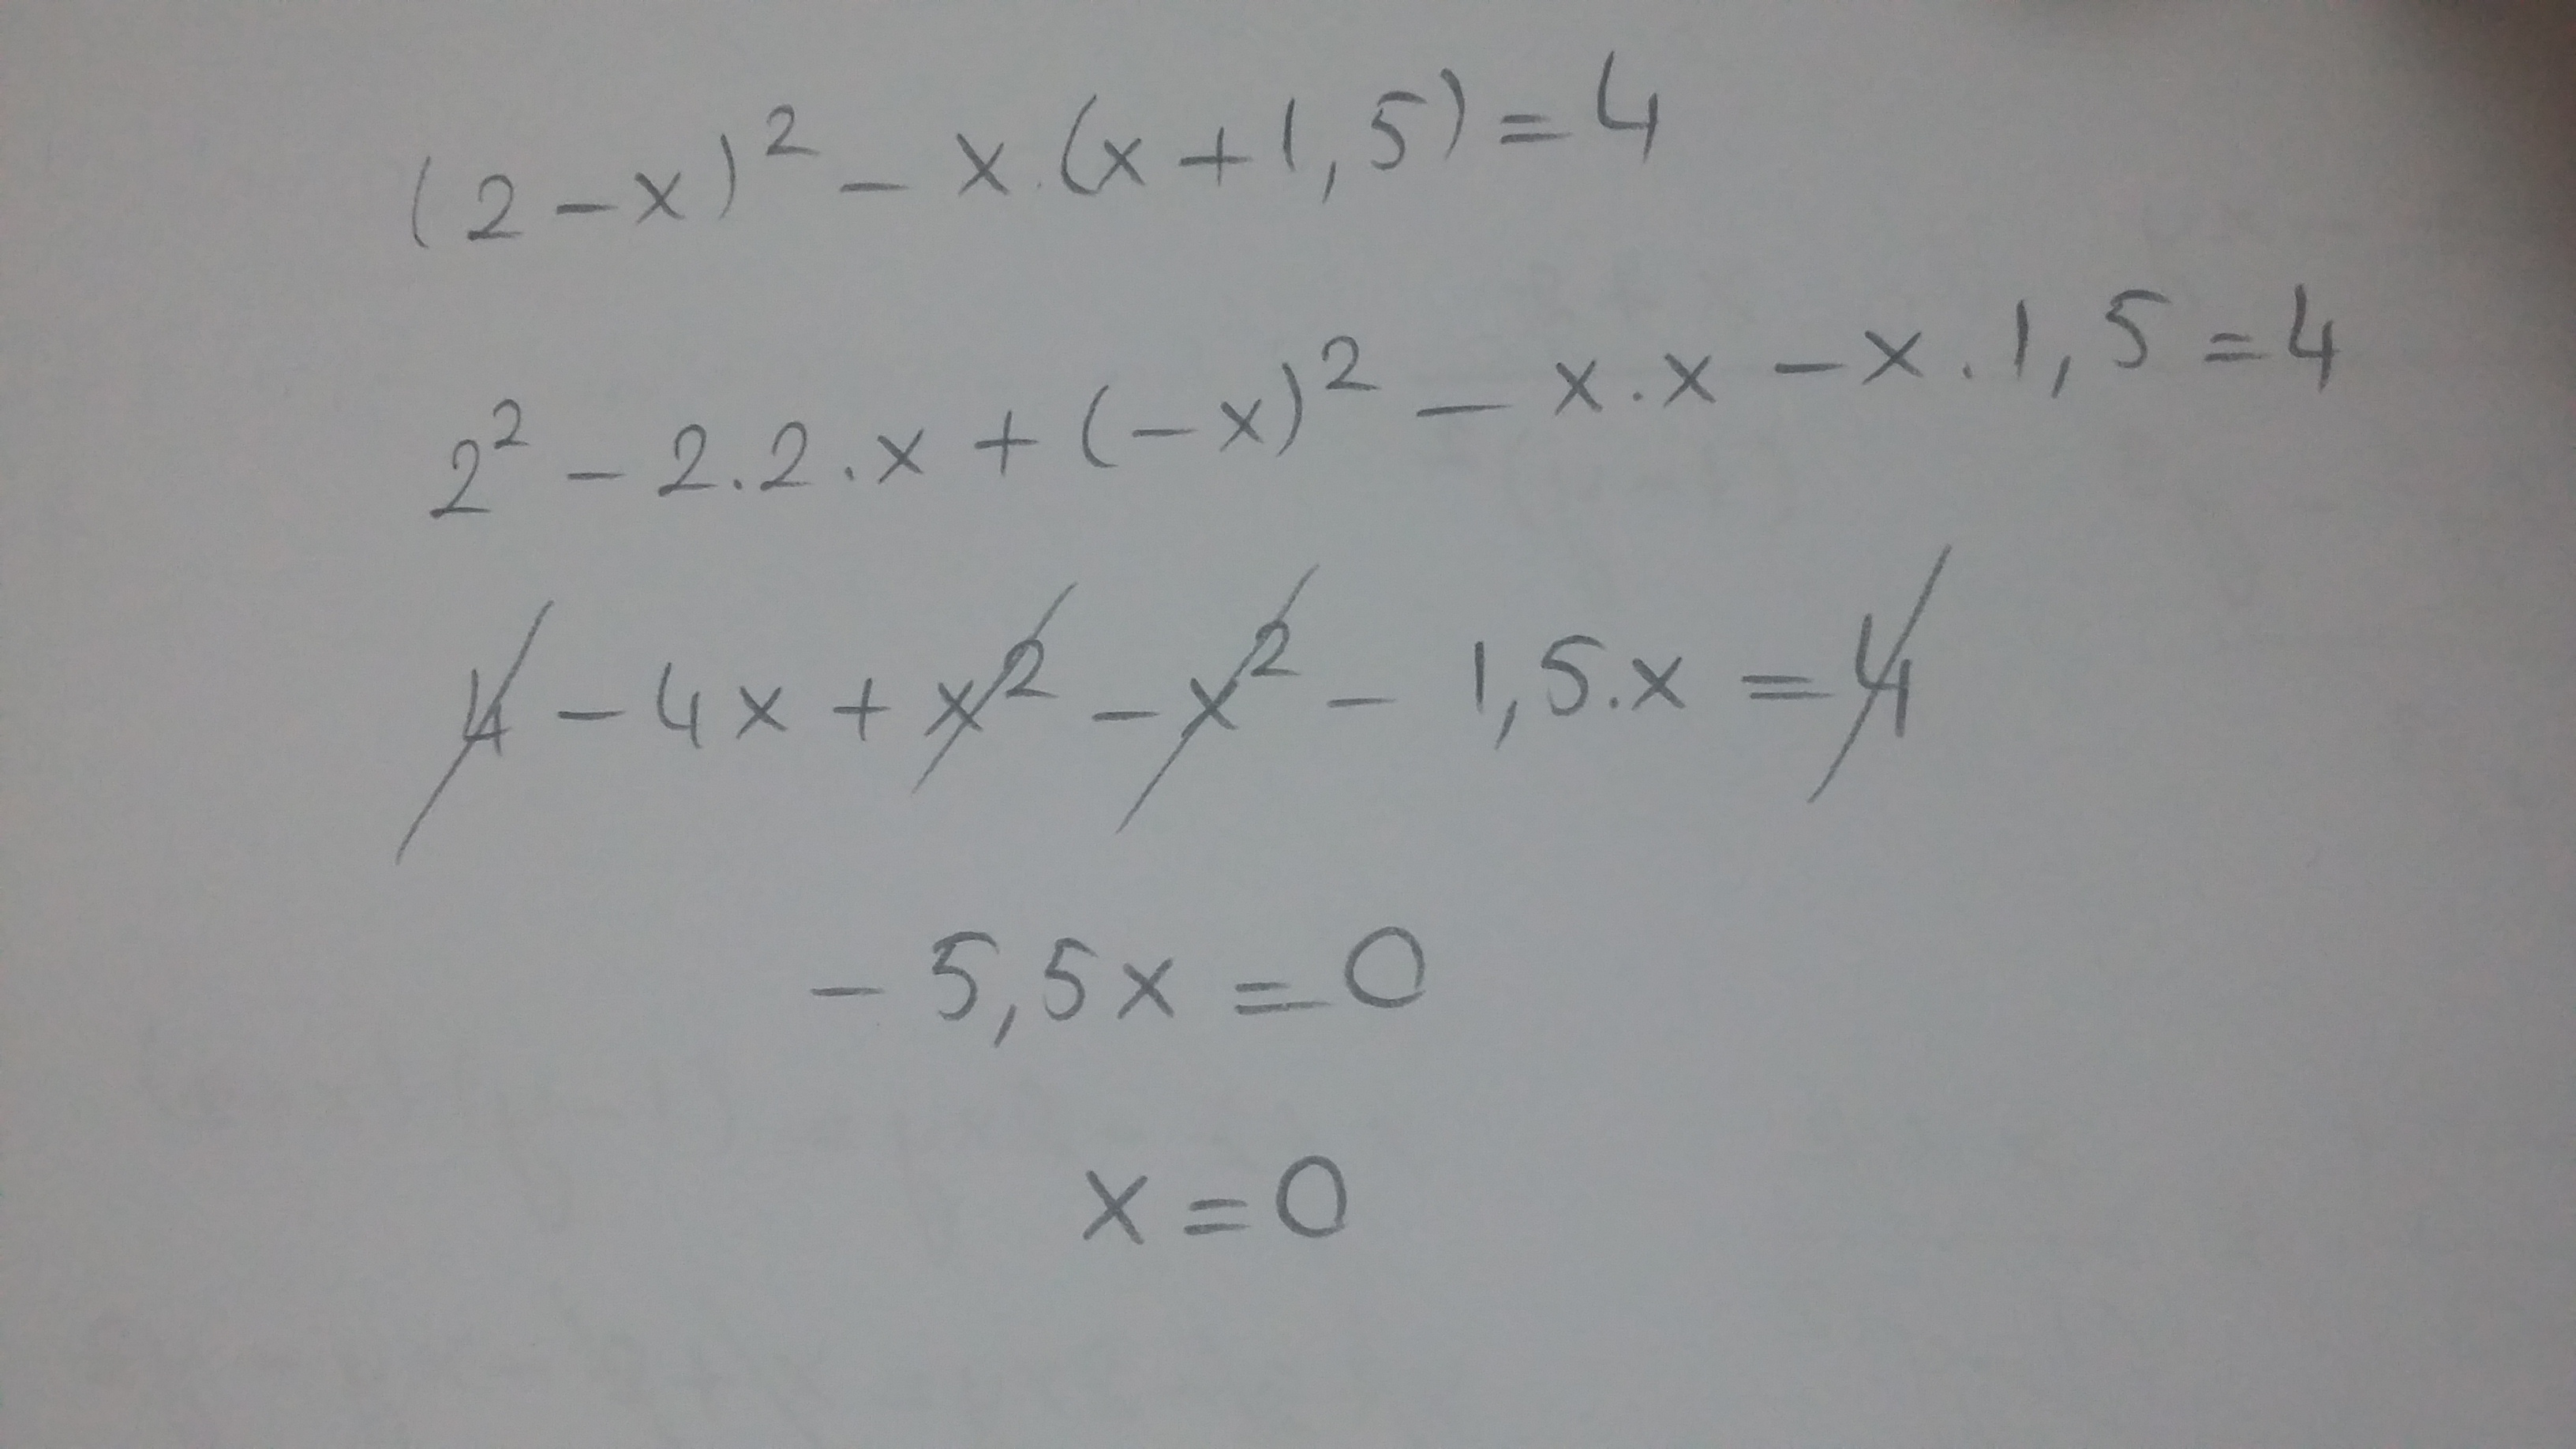 (2-x)² - x.(x+1,5)=4
2² - 2.2.x + (-x)² - x.x - x.1,5 = 4
4 - 4x + x² - x² - 1,5.x = 4
- 5,5x = 0
x = 0